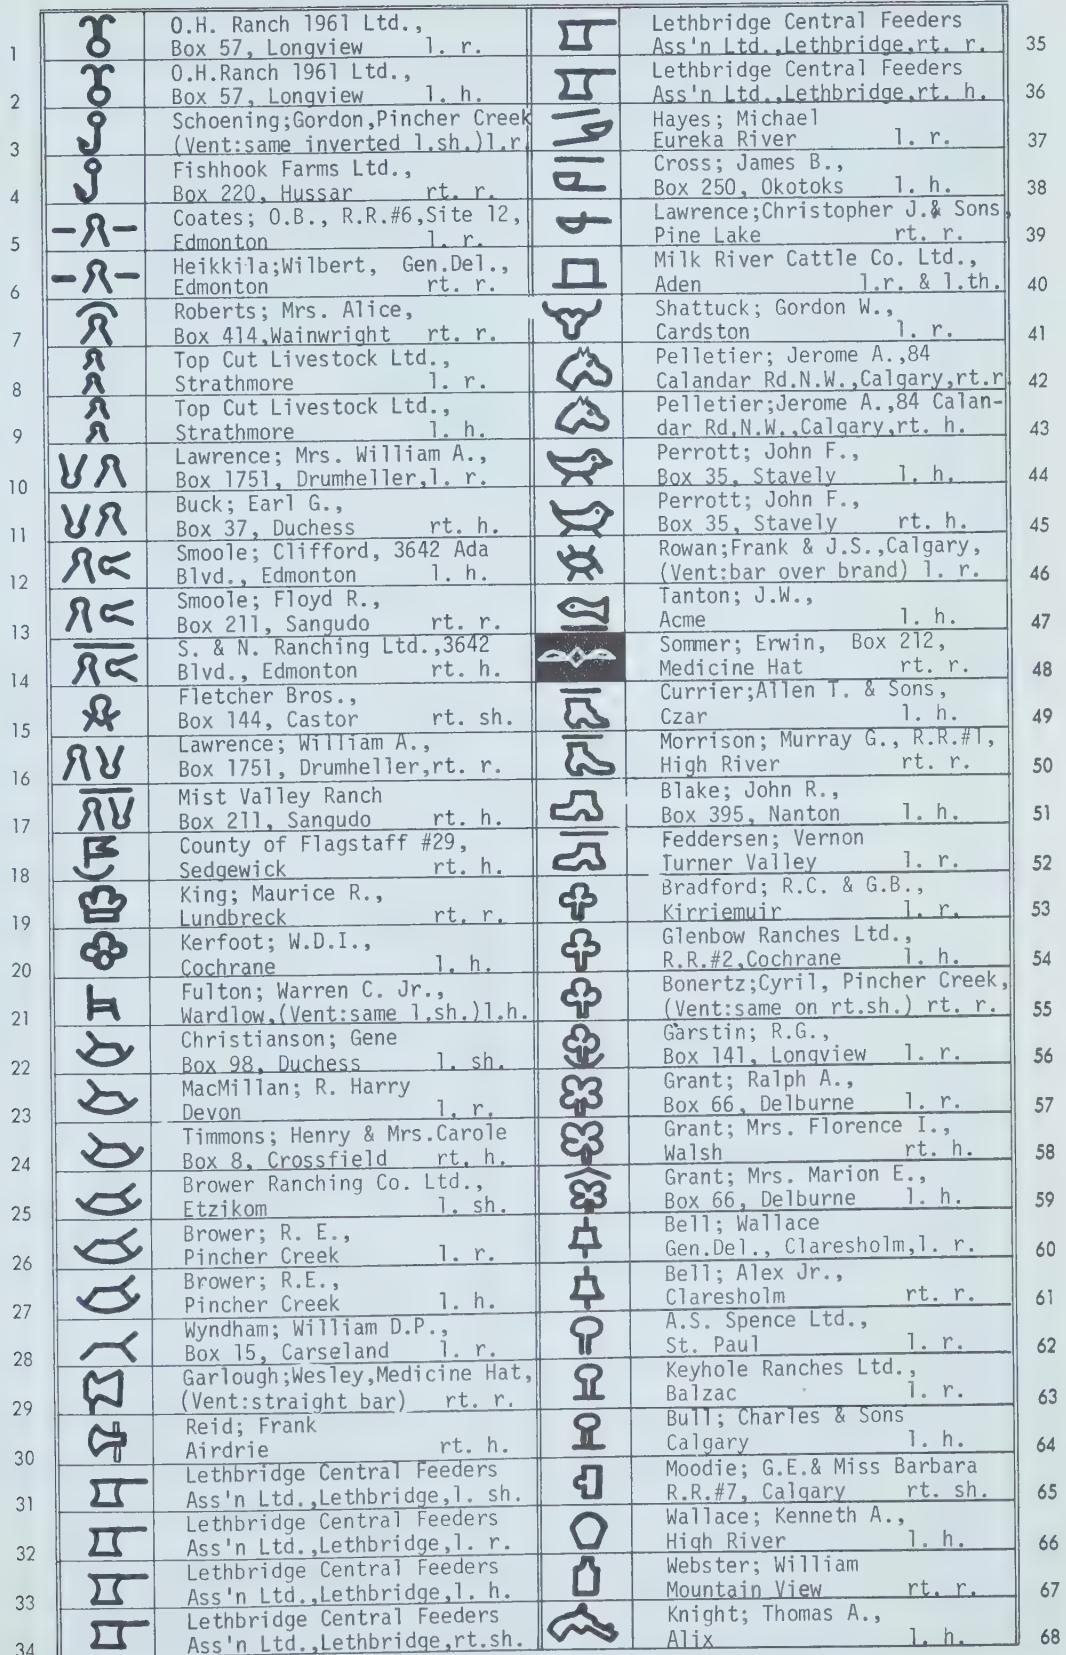 1 O.H. Ranch 1961 Ltd.,
Box 57, Longview l. r.
2 O.H.Ranch 1961 Ltd.,
Box 57, Longview l. h.
3 Schoening;Gordon,Pincher Creek
(Vent:same inverted l.sh.)l.r.
4 Fishhook Farms Ltd.,
Box 220, Hussar rt. r.
5 Coates; O.B., R.R.#6,Site 12,
Edmonton l. r.
6 Heikkila;Wilbert, Gen.Del.,
Edmonton rt. r.
7 Roberts; Mrs. Alice,
Box 414,Wainwright rt. r.
8 Top Cut Livestock Ltd.,
Strathmore l. r.
9 Top Cut Livestock Ltd.,
Strathmore l. h.
10 Lawrence; Mrs. William A.,
Box 1751, Drumheller,l. r.
11 Buck; Earl G.,
Box 37, Duchess rt. h.
12 Smoole; Clifford, 3642 Ada
Blvd., Edmonton l. h.
13 Smoole; Floyd R.,
Box 211, Sangudo rt. r.
14 S. & N. Ranching Ltd.,3642
Blvd., Edmonton rt. h.
15 Fletcher Bros.,
Box 144, Castor rt. sh.
16 Lawrence; William A.,
Box 1751, Drumheller,rt. r.
17 Mist Valley Ranch
Box 211, Sangudo rt. h.
18 County of Flagstaff #29,
Sedgewick rt. h.
19 King; Maurice R.,
Lundbreck rt. r.
20 Kerfoot; W.D.I.,
Cochrane l. h.
21 Fulton; Warren C. Jr.,
Wardlow,(Vent:same l.sh.)l.h.
22 Christianson; Gene
Box 98, Duchess l. sh.
23 MacMillan; R. Harry
Devon l. r.
24 Timmons; Henry & Mrs.Carole
Box 8, Crossfield rt. h.
25 Brower Ranching Co. Ltd.,
Etzikom l. sh.
26 Brower; R. E.,
Pincher Creek l. r.
27 Brower; R.E.,
Pincher Creek l. h.
28 Wyndham; William D.P.,
Box 15, Carseland l. r.
29 Garlough;Wesley,Medicine Hat,
(Vent:straight bar) rt. r.
30 Reid; Frank
Airdrie rt. h.
31 Lethbridge Central Feeders
Ass'n Ltd.,Lethbridge,l. sh.
32 Lethbridge Central Feeders
Ass'n Ltd.,Lethbridge,l. r.
33 Lethbridge Central Feeders
Ass'n Ltd.,Lethbridge,l. h.
34 Lethbridge Central Feeders
Ass'n Ltd.,Lethbridge,rt.sh.
Lethbridge Central Feeders
Ass'n Ltd.,Lethbridge,rt. r. 35
Lethbridge Central Feeders
Ass'n Ltd.,Lethbridge,rt. h. 36
Hayes; Michael
Eureka River l. r. 37
Cross; James B.,
Box 250, Okotoks l. h. 38
Lawrence;Christopher J.& Sons,
Pine Lake rt. r. 39
Milk River Cattle Co. Ltd.,
Aden l.r. & l.th. 40
Shattuck; Gordon W.,
Cardston l. r. 41
Pelletier; Jerome A.,84
Calandar Rd.N.W.,Calgary,rt.r 42
Pelletier;Jerome A.,84 Calan-
dar Rd.N.W.,Calgary,rt. h. 43
Perrott; John F.,
Box 35, Stavely l. h. 44
Perrott; John F.,
Box 35, Stavely rt. h. 45
Rowan;Frank & J.S.,Calgary,
(Vent:bar over brand) l. r. 46
Tanton; J.W.,
Acme l. h. 47
Sommer; Erwin, Box 212,
Medicine Hat rt. r. 48
Currier;Allen T. & Sons,
Czar l. h. 49
Morrison; Murray G., R.R.#1,
High River rt. r. 50
Blake; John R.,
Box 395, Nanton l. h. 51
Feddersen; Vernon
Turner Valley l. r. 52
Bradford; R.C. & G.B.,
Kirriemuir l. r. 53
Glenbow Ranches Ltd.,
R.R.#2,Cochrane l. h. 54
Bonertz;Cyril, Pincher Creek,
(Vent:same on rt.sh.) rt. r. 55
Garstin; R.G.,
Box 141, Longview l. r. 56
Grant; Ralph A.,
Box 66, Delburne l. r. 57
Grant; Mrs. Florence I.,
Walsh rt. h. 58
Grant; Mrs. Marion E.,
Box 66, Delburne l. h. 59
Bell; Wallace
Gen.Del., Claresholm,l. r. 60
Bell; Alex Jr.,
Claresholm rt. r. 61
A.S. Spence Ltd.,
St. Paul l. r. 62
Keyhole Ranches Ltd.,
Balzac l. r. 63
Bull; Charles & Sons
Calgary l. h. 64
Moodie; G.E.& Miss Barbara
R.R.#7, Calgary rt. sh. 65
Wallace; Kenneth A.,
High River l. h. 66
Webster; William
Mountain View rt. r. 67
Knight; Thomas A.,
Alix l. h. 68